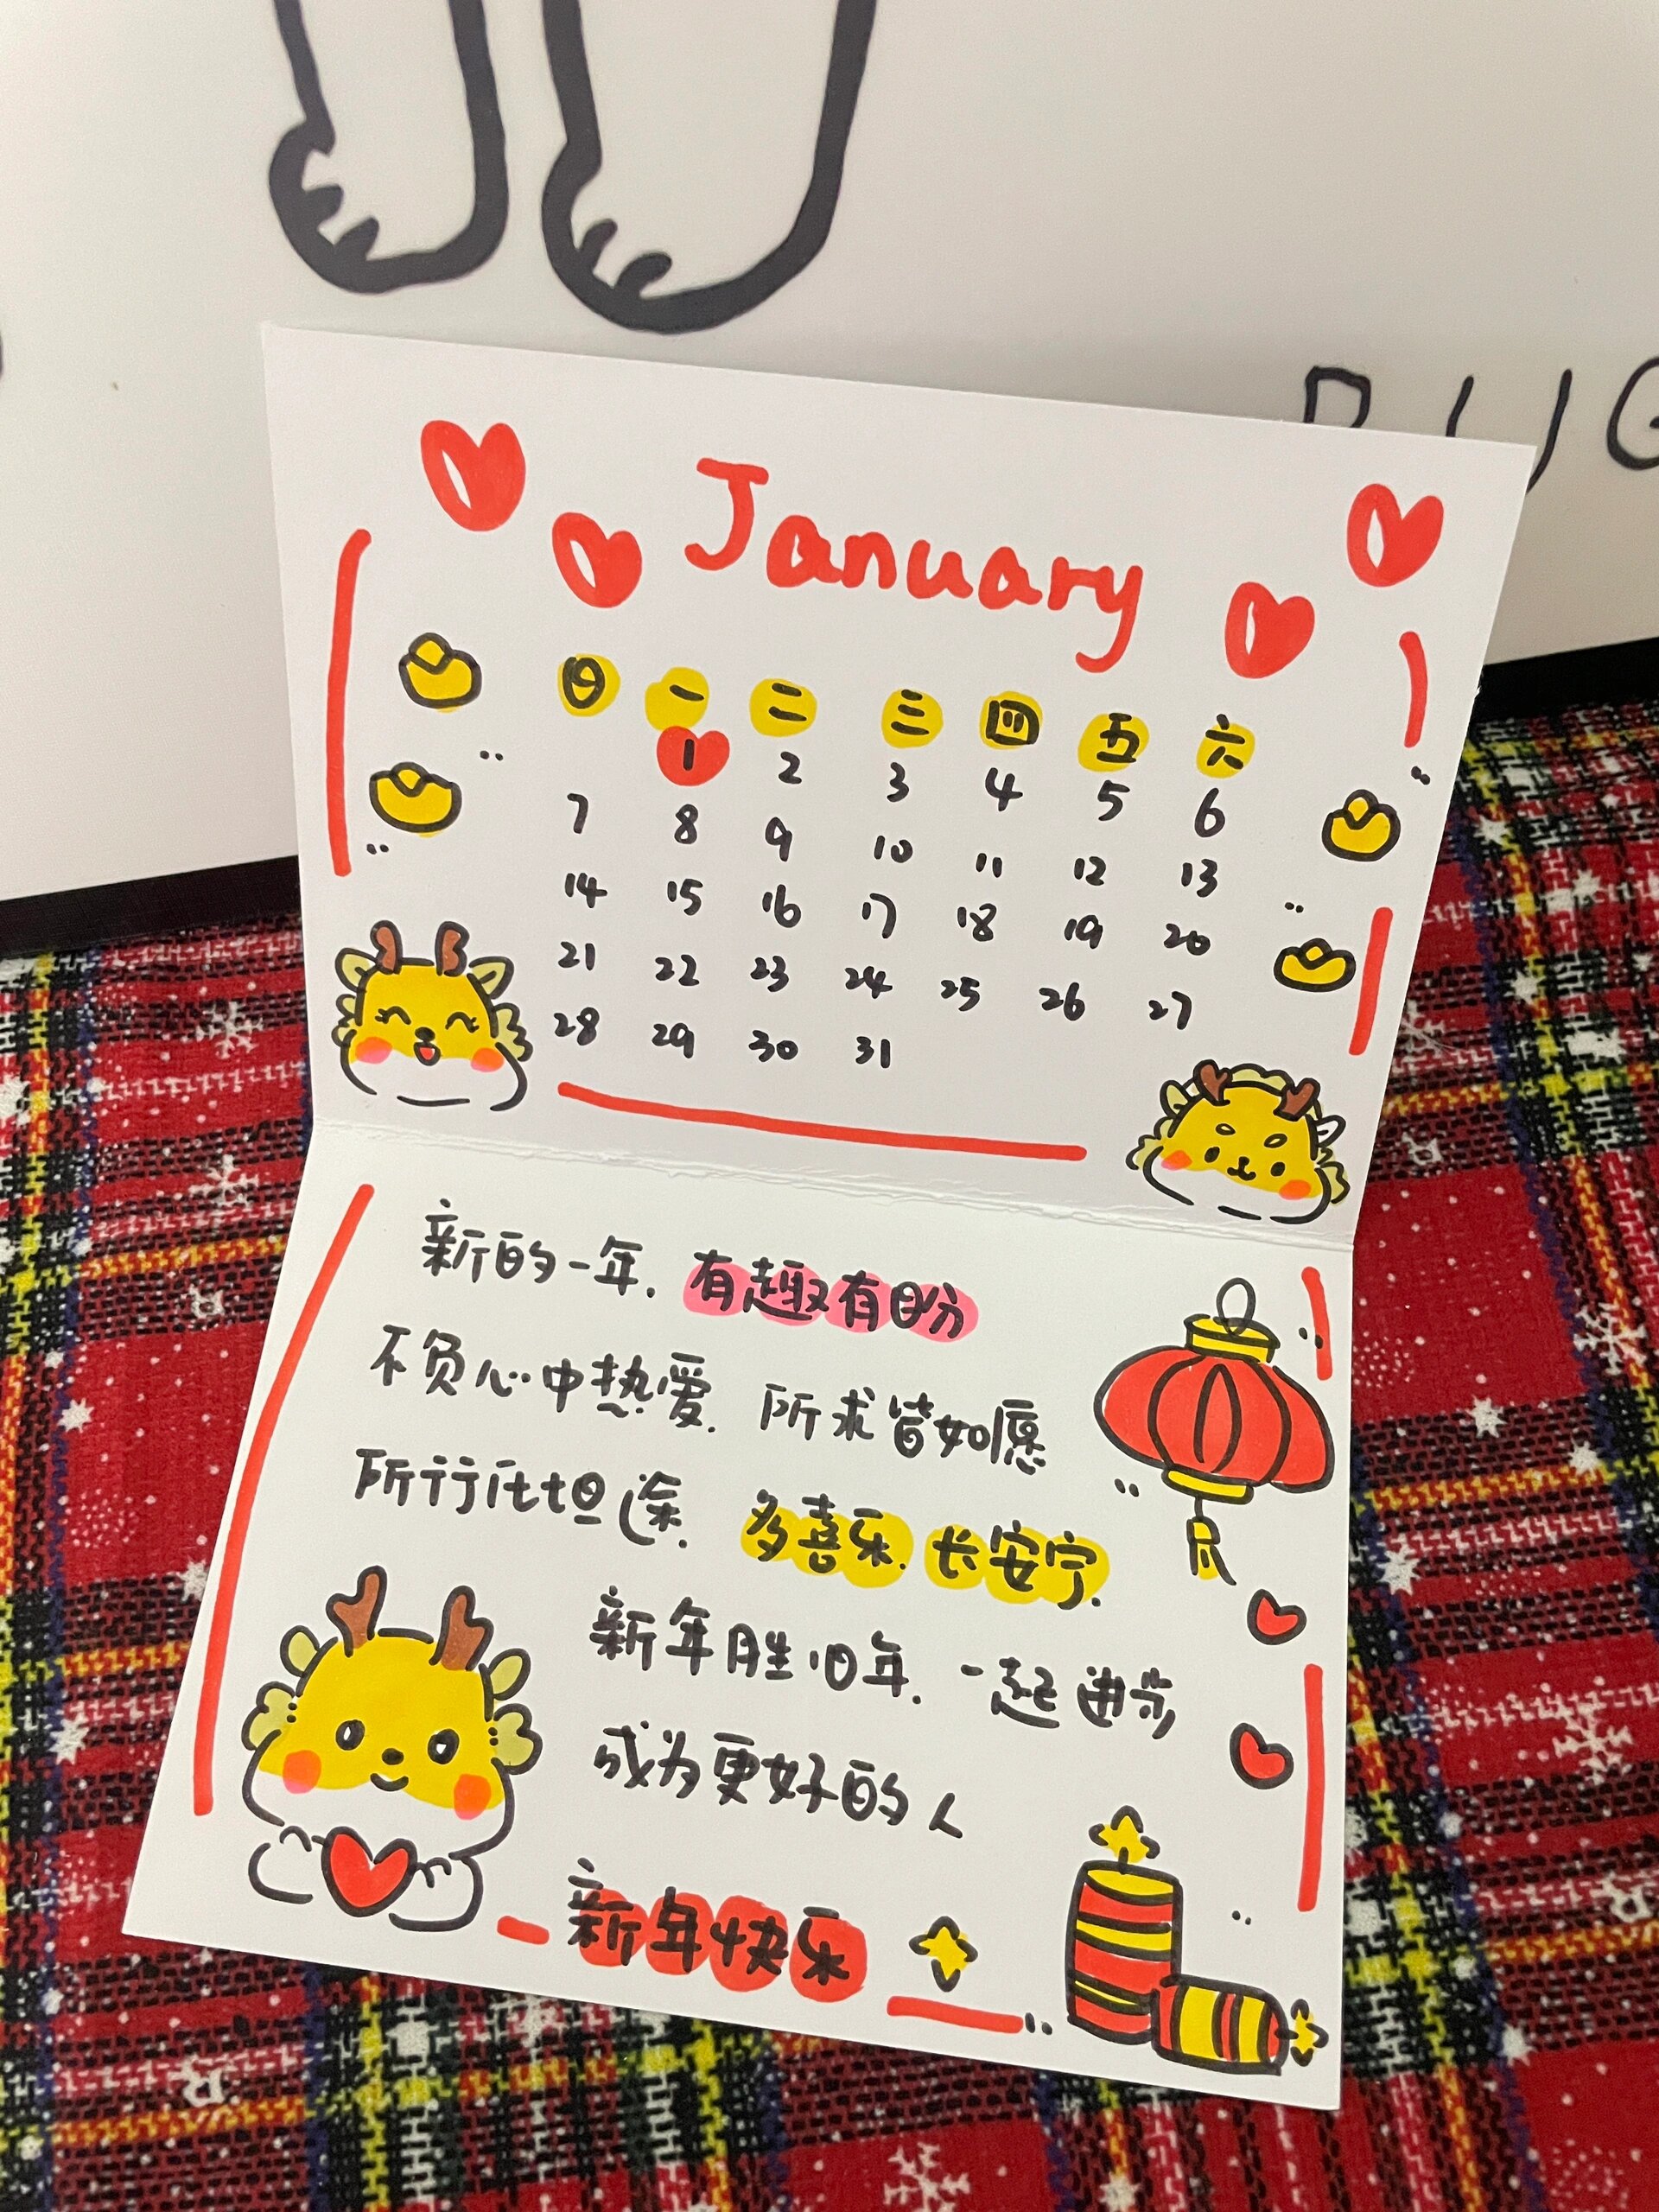 January
日 一 二 三 四 五 六
1 2 3 4 5 6
7 8 9 10 11 12 13
14 15 16 17 18 19 20
21 22 23 24 25 26 27
28 29 30 31
新的一年. 有趣有盼
不负心中热爱. 所求皆如愿
所行化坦途. 多喜乐. 长安宁.
新年胜旧年. 一起进步
成为更好的人
新年快乐